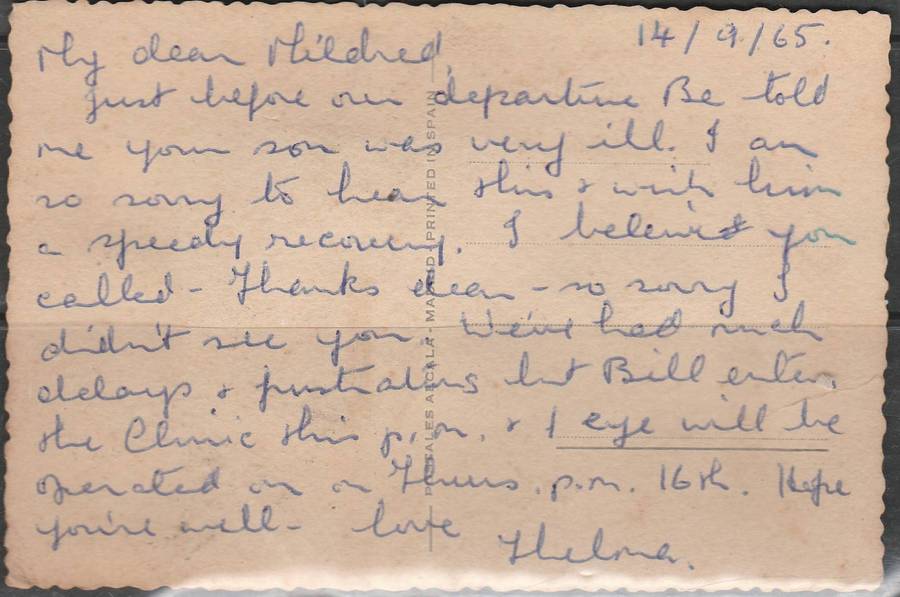 14/9/65.
My dear Mildred,
Just before our departure Be told
me your son was very ill. I am
so sorry to hear this & wish him
a speedy recovery. I believe you
called - Thanks dear - so sorry I
didn't see you. We've had such
delays & frustrations but Bill enters
the Clinic this p.m. & 1 eye will be
operated on on Thurs. p.m. 16th. Hope
you're well - love
Thelma.
POSTALES ALCALA - MADRID PRINTED IN SPAIN